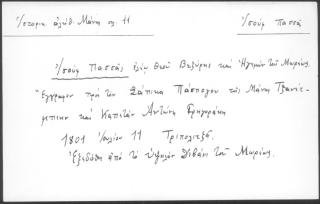 Ἱστορικ. ἀλήθ. Μάνη σελ. 11
Ἰσούφ Πασσᾶ
Ἰσούφ Πασσᾶς ἐλέῳ Θεοῦ Βεζύρης καὶ Ἡγεμὼν τοῦ Μωρέως.
Ἔγγραφον πρὸ τὸν Σάπικα Πάσπογον τῆς Μάνης Τζανέ-
μπεην καὶ Καπετάν Ἀντώνη Γρηγοράκη
1801 Ἰουλίου 11 Τριπολιτζᾶ.
Ἐξεδόθη ἀπὸ τὸ ὑψηλὸν Διβάνι τοῦ Μωρέως.